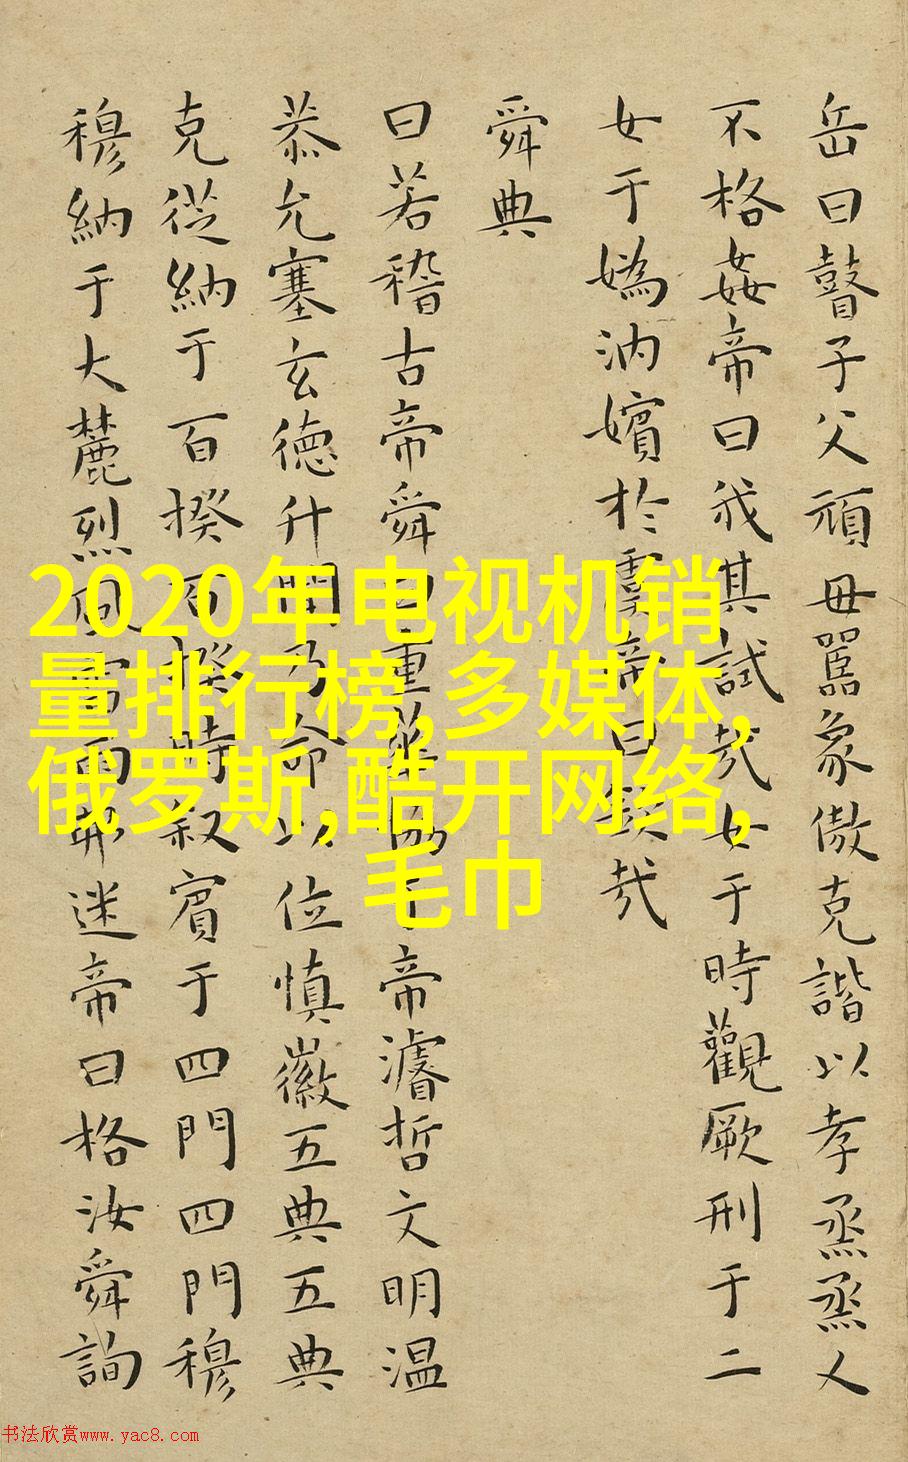 岳曰瞽子父頑毋嚚象傲克諧以孝烝烝乂
不格姦帝曰我其試哉女于時觀厥刑于二
女于媯汭嬪於虞帝曰欽哉
舜典
曰若稽古帝舜曰重華協于帝濬哲文明温
恭允塞玄德升聞乃命以位慎徽五典五典
克從納于百揆百揆時叙賓于四門四門穆
穆納于大麓烈風雷雨弗迷帝曰格汝舜詢
2020年电视机销
量排行榜,多媒体,
俄罗斯,酷开网络,
毛巾
书法欣赏www.yac8.com